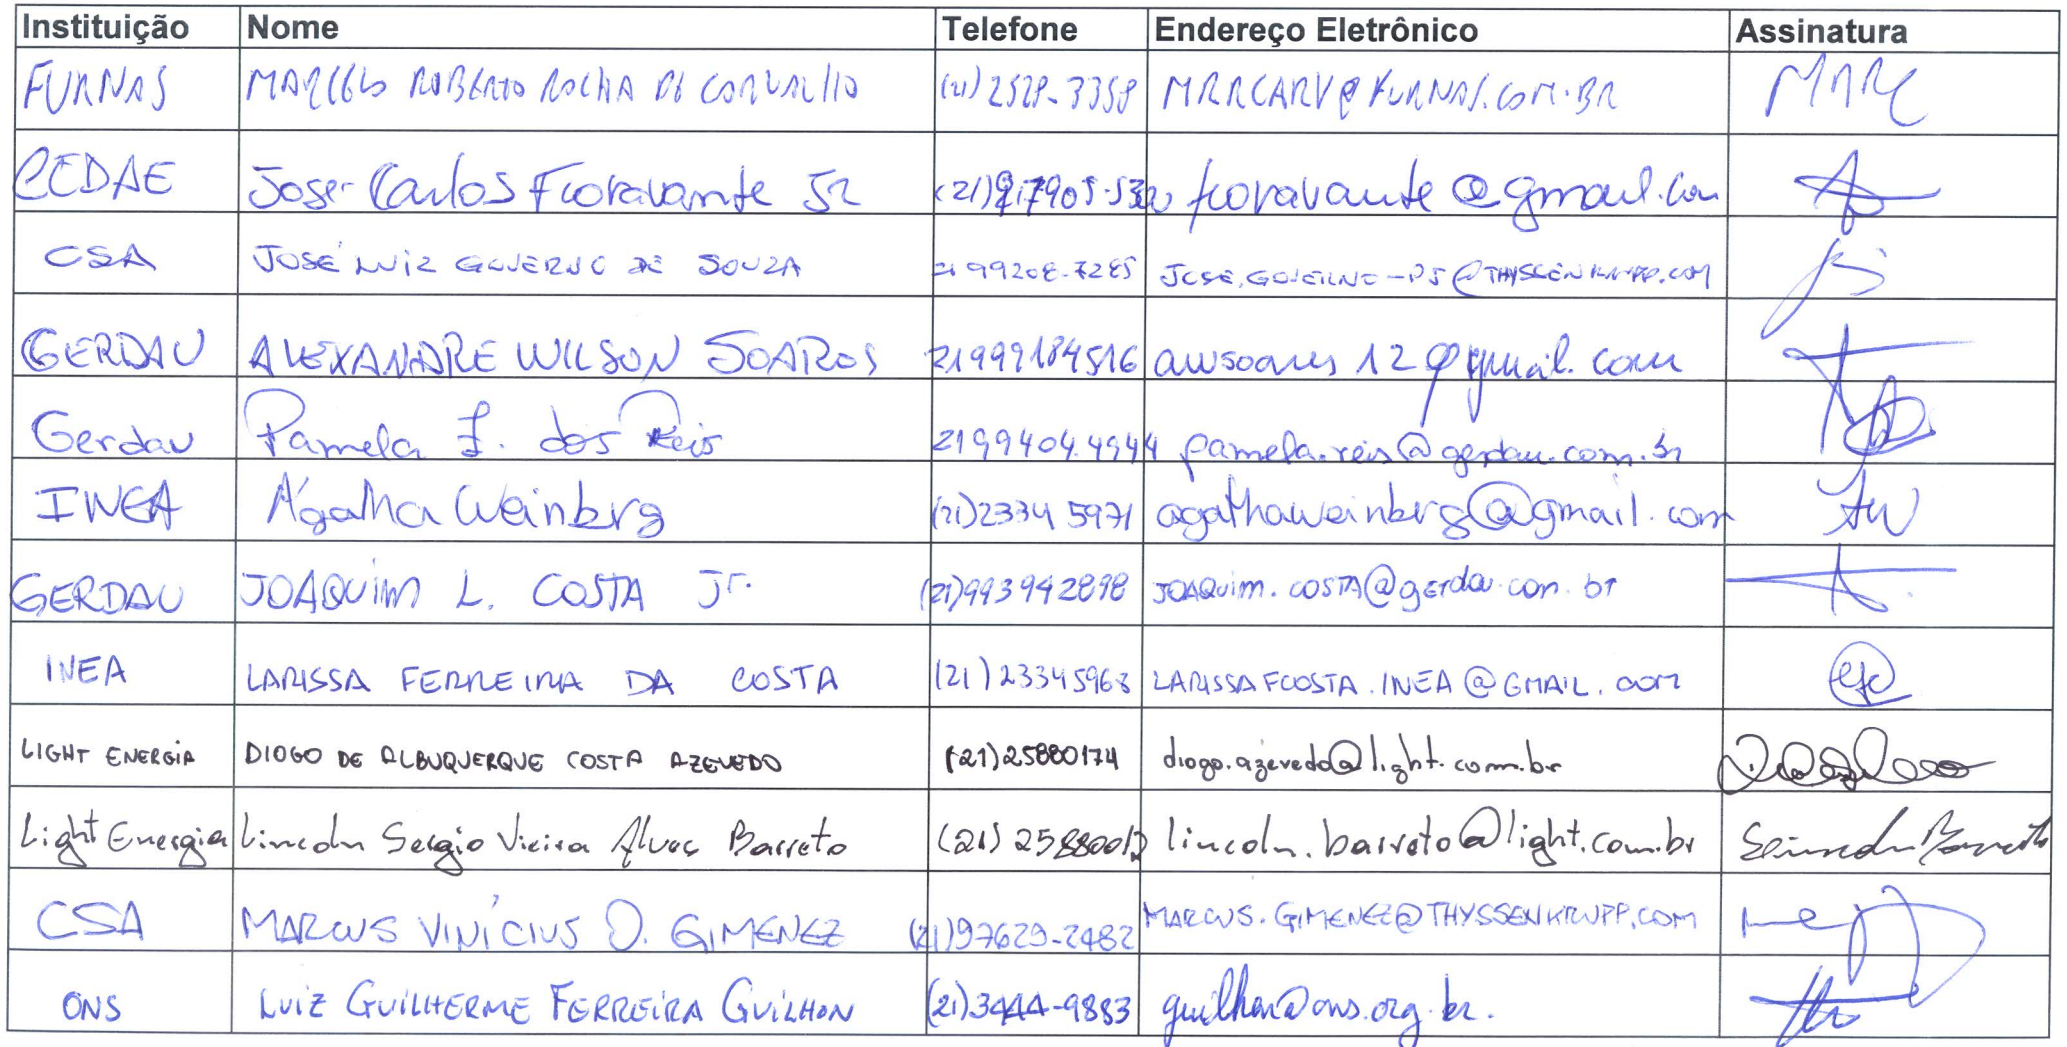 Instituição Nome Telefone Endereço Eletrônico Assinatura
FURNAS MARCELO ROBERTO ROCHA DE CARVALHO (21) 2528-3358 MRRCARV@FURNAS.COM.BR
CEDAE José Carlos Fioravante Jr fioravante@gmail.com
CSA JOSÉ LUIZ GOVERNO DE SOUZA 21 99208-7285 JOSE.GOVERNO-PS@THYSSENKRUPP.COM
GERDAU ALEXANDRE WILSON SOARES 21999184516 awsoares12@gmail.com
Gerdau Pamela F. dos Reis 2199404.4944 pamela.reis@gerdau.com.br
INEA Ágatha Weinberg (21)2334 5971 agathaweinberg@gmail.com
GERDAU JOAQUIM L. COSTA Jr. (21)993942898 JOAQUIM.COSTA@gerdau.com.br
INEA LARISSA FERREIRA DA COSTA (21)23345963 LARISSAFCOSTA.INEA@GMAIL.COM
LIGHT ENERGIA DIOGO DE ALBUQUERQUE COSTA AZEVEDO (21)25880174 diogo.azevedo@light.com.br
Light Energia Lincoln Sergio Vieira Alves Barreto (21) 25880012 lincoln.barreto@light.com.br
CSA MARCUS VINÍCIUS D. GIMENEZ (21)97629-2482 MARCUS.GIMENEZ@THYSSENKRUPP.COM
ONS LUIZ GUILHERME FERREIRA GUILHON (21)3444-9883 guilhon@ons.org.br.